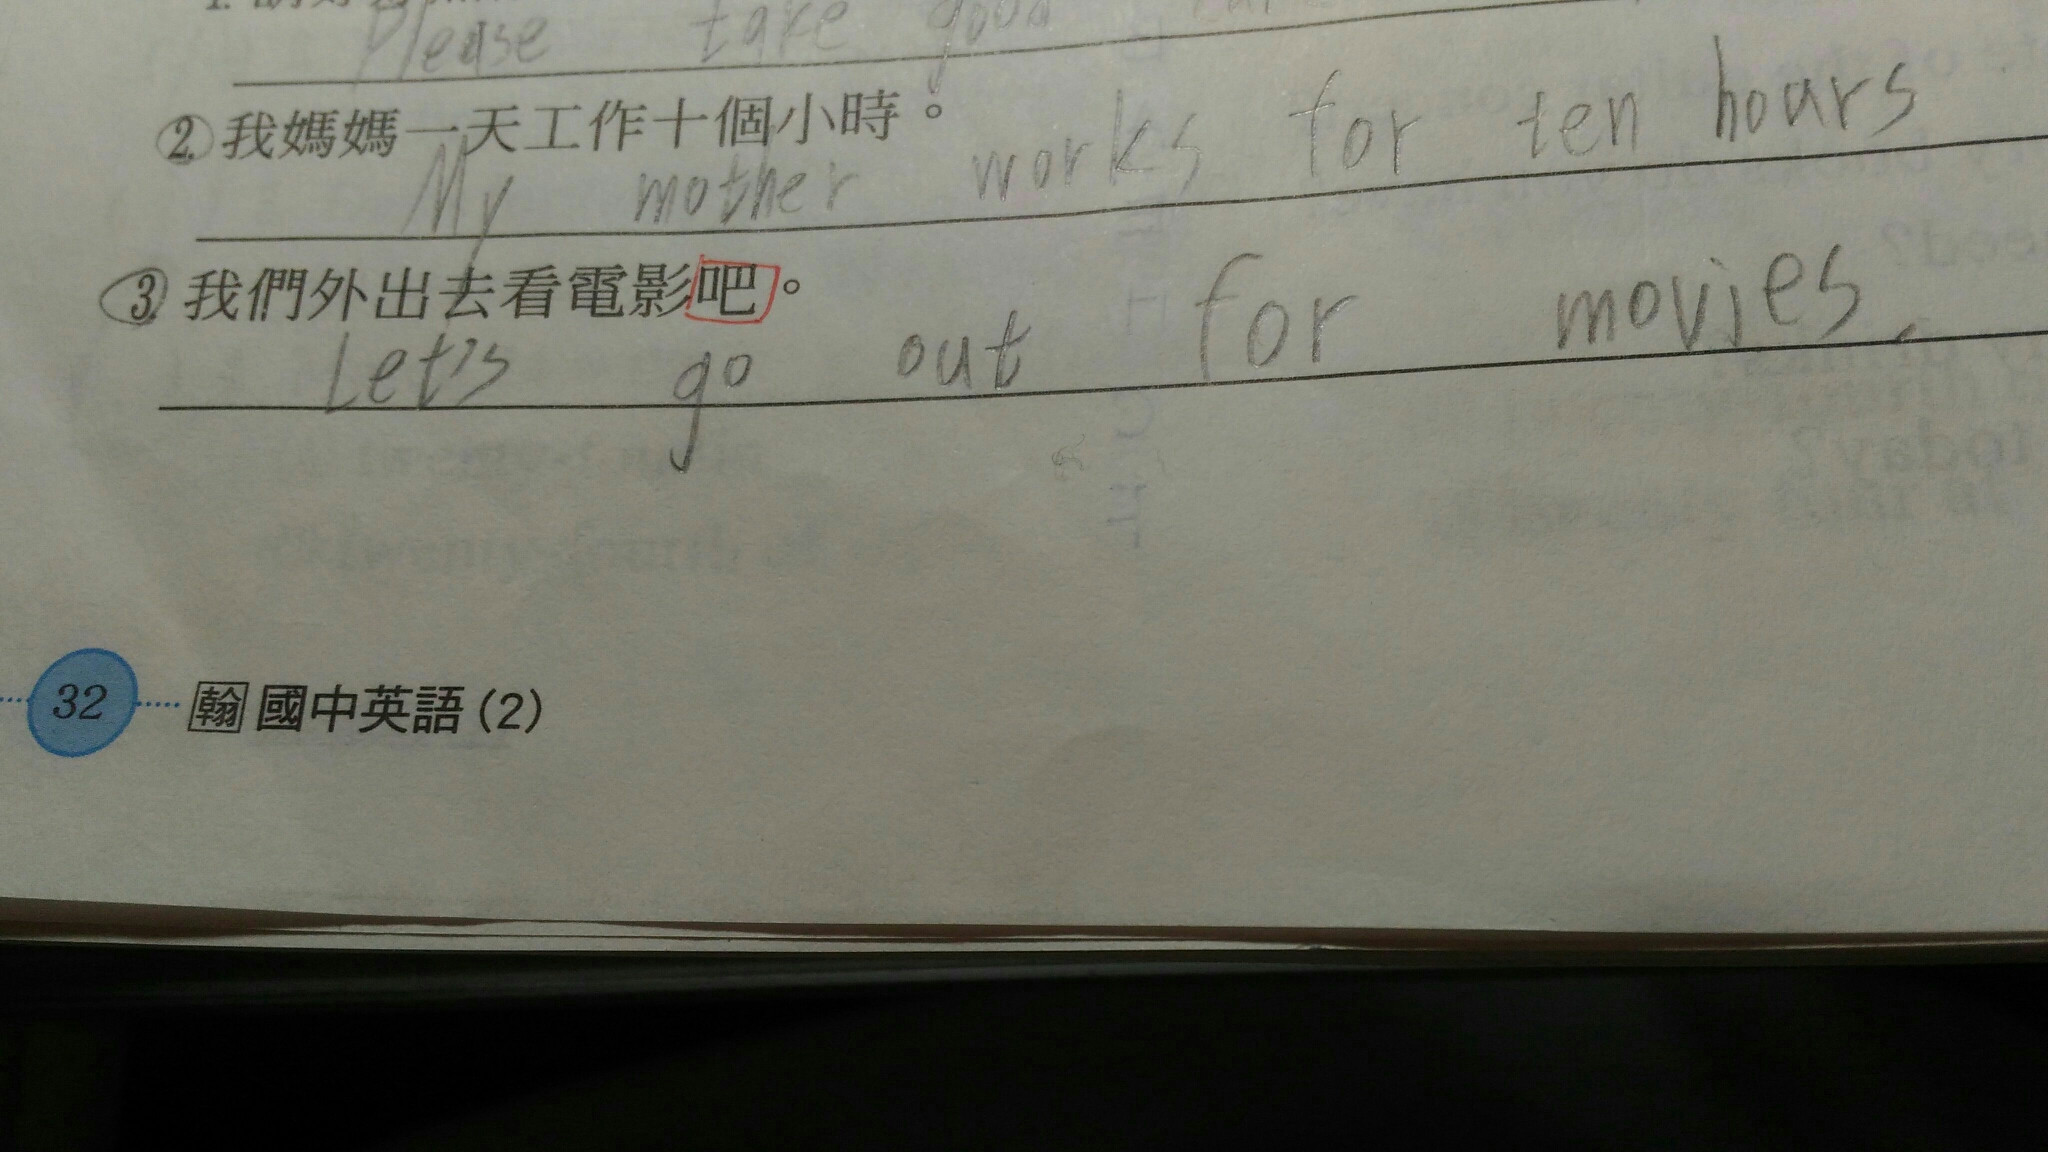 Please take good
2. 我媽媽一天工作十個小時。
My mother works for ten hours
3. 我們外出去看電影吧。
Let's go out for movies.
32 翰 國中英語(2)